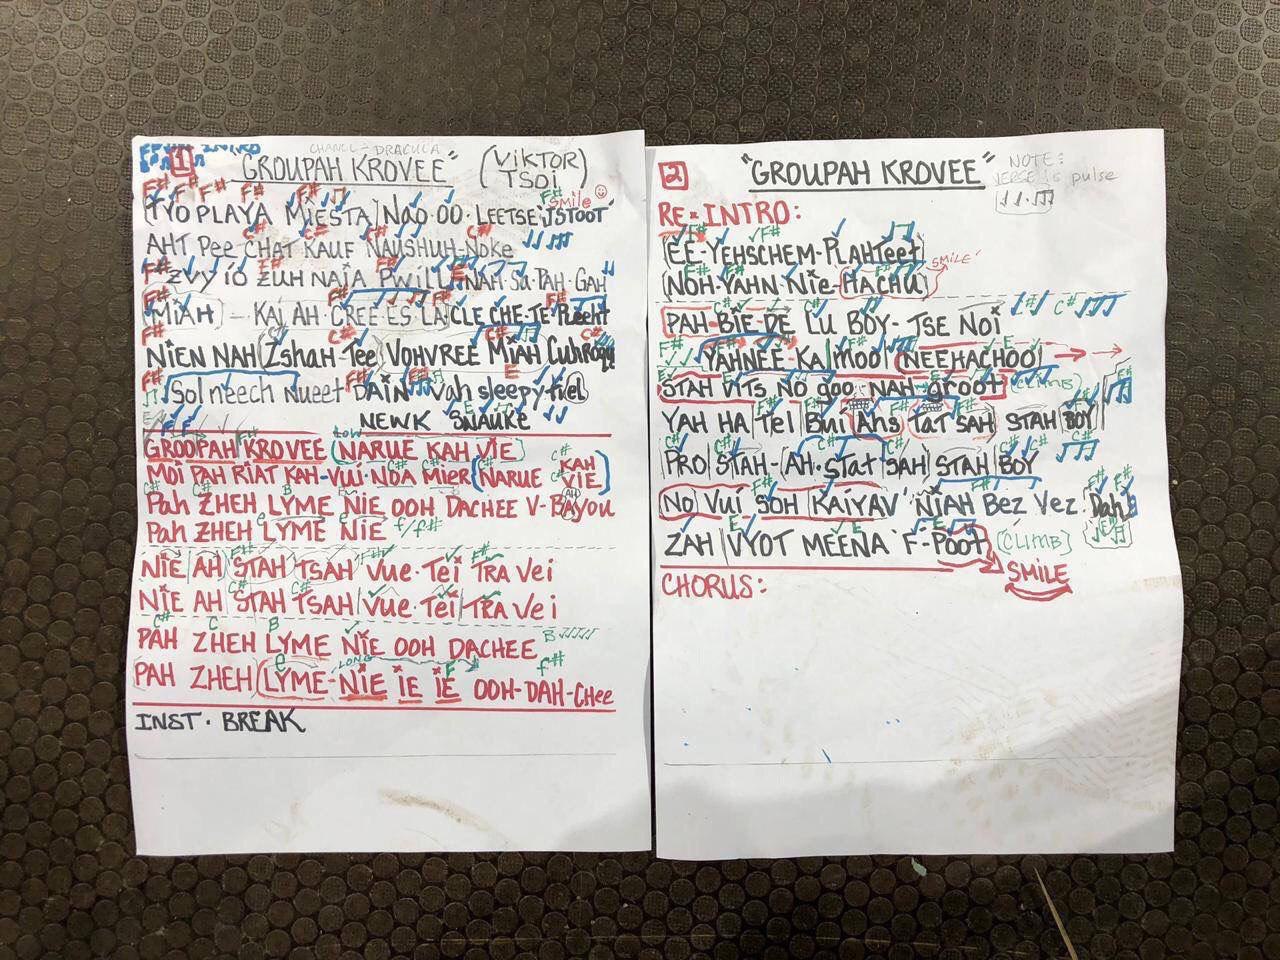 1
CHANEL - DRACULA
"GROUPAH KROVEE" (VIKTOR TSOI)
TYO PLAYA MIESTA NAO-OO-LEETSE ISTOOT
SMILE
AHT Pee-CHAT KAUF NAUSHUH-Noke
ZVY IO ZUH NAIA PWILL NAH-Su-PAH-GAH
MIAH - KAI AH CREE ES LA CLE CHE-TE
NIEN NAH ZshaH Tee VOHVREE MIAH
Sol neech Nueet DAIN Vah sleepy tiel
NEWK SNAUKE
GROOPAH KROVEE (NARUE KAH VIE
MOI PAH RIAT KAH-VUI-NOA MIER (NARUE KAH VIE)
Pah ZHEH LYME NIE OOH DACHEE V-BAYou
Pah ZHEH LYME NIE f/f#
NIE AH STAH TSAH VUE-TEI TRA VEI
NIE AH STAH TSAH VUE-TEI TRA VEI
PAH ZHEH LYME NIE OOH DACHEE
LONG
PAH ZHEH LYME-NIE IE IE OOH-DAH-CHee
INST. BREAK
2
"GROUPAH KROVEE"
NOTE:
VERSE is pulse
RE-INTRO:
EE-YEHSCHEM-PLAHTeet
NOH-YAHN-Nie-HACHU
SMILE
PAH-BIE-DE Lu BOY-TSE NOI
YAHNEE-KA MOO NEEHACHOO
STAH VITS NO goo NAH-grOOt (CLIMB)
YAH HA Tel BUI AHS TAT SAH STAH BOY
PRO STAH-AH-STAT SAH STAH BOY
NO VUI SOH KAIYAV' NIAH Bez Vez Dah
ZAH VYOT MEENA F-POOT (CLIMB)
SMILE
CHORUS: